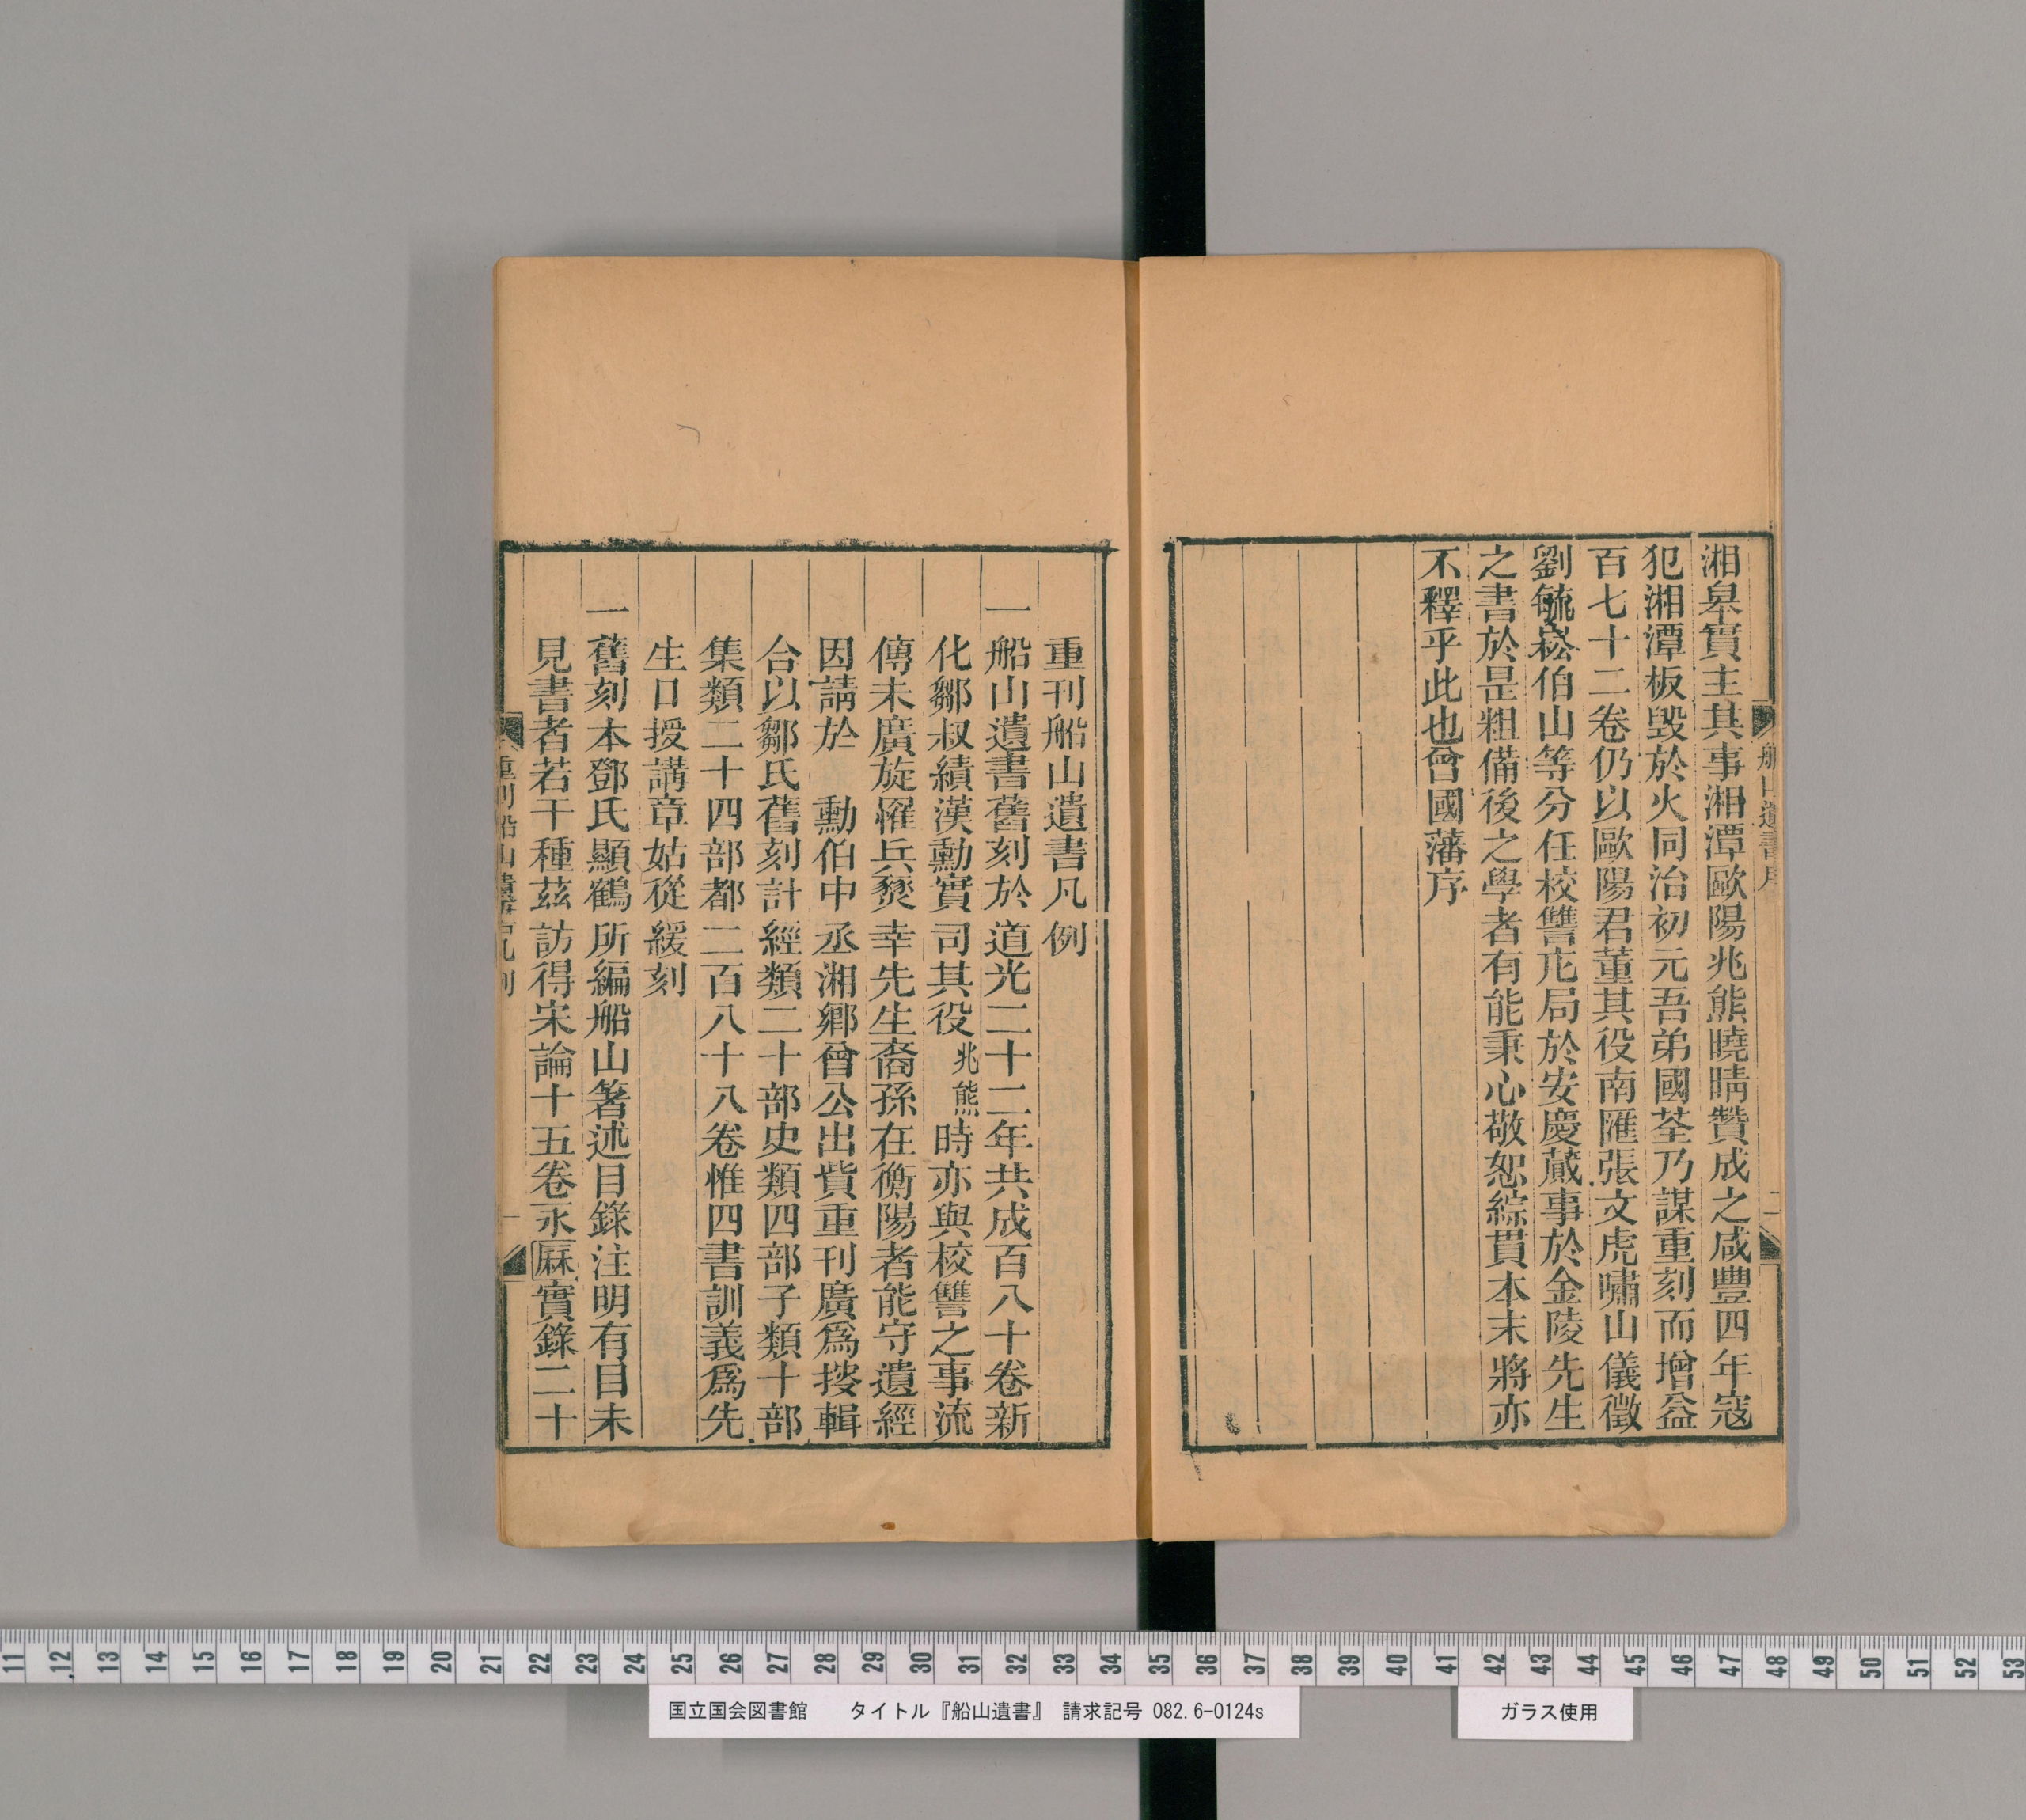 湘皋實主其事湘潭歐陽兆熊曉晴贊成之咸豐四年寇
犯湘潭板毀於火同治初元吾弟國荃乃謀重刻而增益
百七十二卷仍以歐陽君董其役南匯張文虎嘯山儀徵
劉毓崧伯山等分任校讐庀局於安慶蕆事於金陵先生
之書於是粗備後之學者有能秉心敬恕綜貫本末將亦
不釋乎此也曾國藩序
船山遺書序
二
重刊船山遺書凡例
一船山遺書舊刻於道光二十二年共成百八十卷新
化鄒叔績漢勳實司其役兆熊時亦與校讐之事流
傳未廣旋罹兵燹幸先生裔孫在衡陽者能守遺經
因請於 勳伯中丞湘鄉曾公出貲重刊廣爲搜輯
合以鄒氏舊刻計經類二十部史類四部子類十部
集類二十四部都二百八十八卷惟四書訓義爲先
生口授講章姑從緩刻
一舊刻本鄧氏顯鶴所編船山箸述目錄注明有目未
見書者若干種茲訪得宋論十五卷永厤實錄二十
重刊船山遺書凡例
一
国立国会図書館 タイトル『船山遺書』 請求記号 082.6-0124s
ガラス使用
11 12 13 14 15 16 17 18 19 20 21 22 23 24 25 26 27 28 29 30 31 32 33 34 35 36 37 38 39 40 41 42 43 44 45 46 47 48 49 50 51 52 53